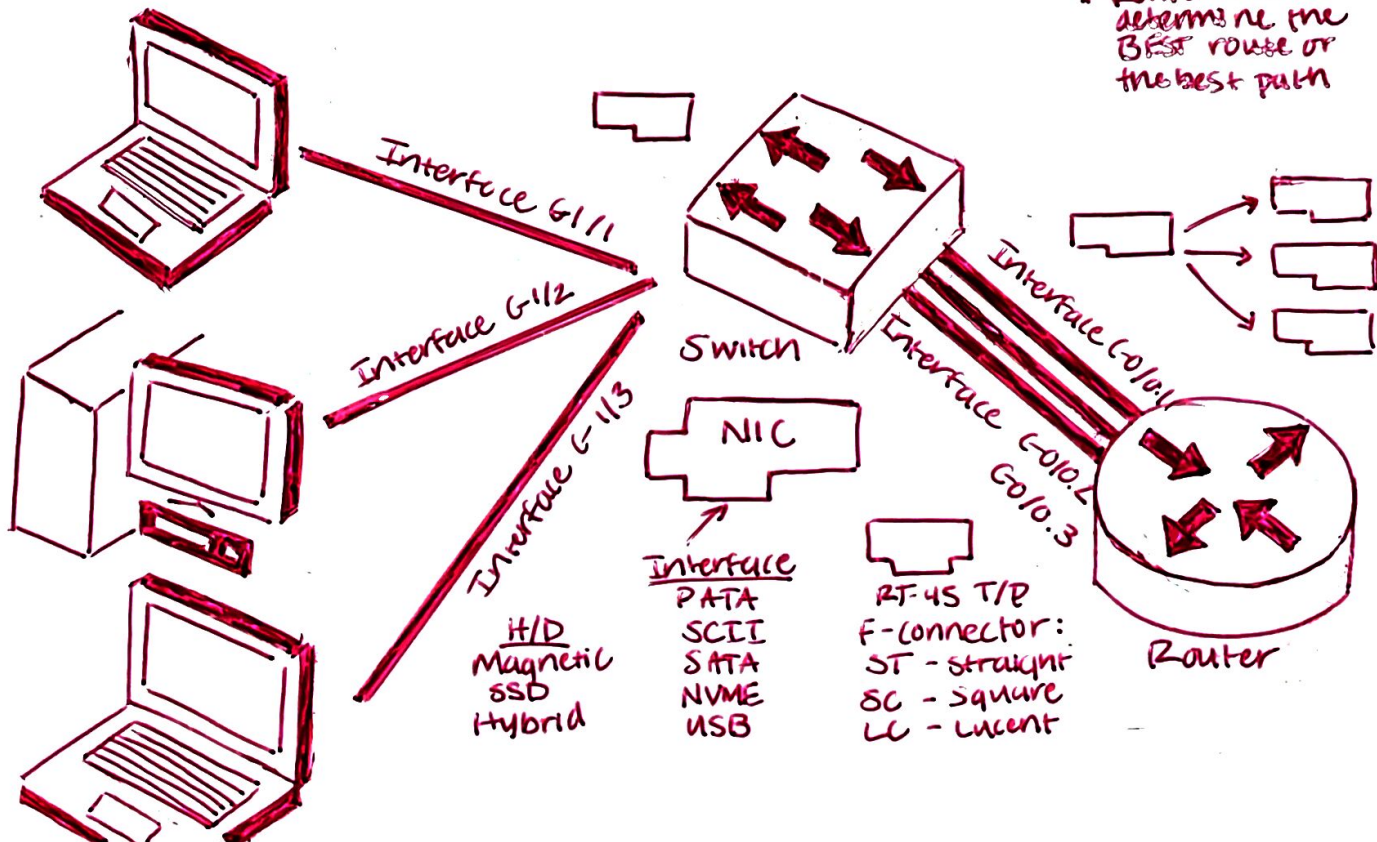 determine the
BEST route or
the best path
Interface G1/1
Interface G1/2
Interface G1/3
Switch
Interface G0/0.1
Interface G0/0.2
G0/0.3
Router
NIC
Interface
PATA
SCII
SATA
NVME
USB
H/D
Magnetic
SSD
Hybrid
RT-45 T/P
F-connector:
ST - straight
SC - square
LC - Lucent